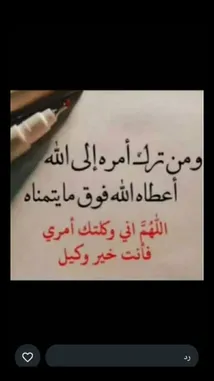 ومن ترك أمره إلى الله
أعطاه الله فوق ما يتمناه
اللهُمَّ اني وكلتك أمري
فأنت خير وكيل
رد